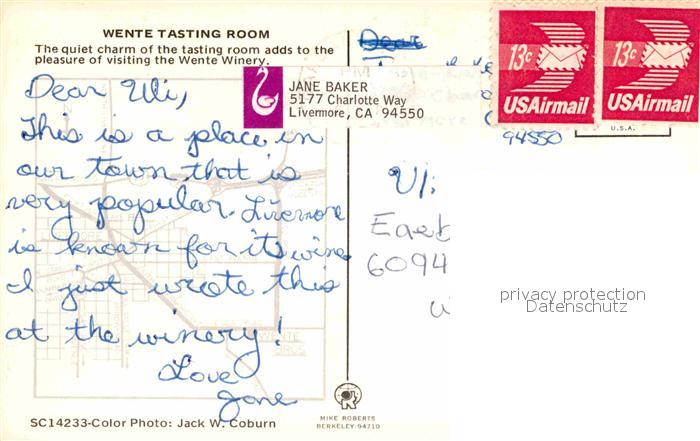 WENTE TASTING ROOM
The quiet charm of the tasting room adds to the
pleasure of visiting the Wente Winery.
Dear Uli,
This is a place in
our town that is
very popular. Livermore
is known for its wine
I just wrote this
at the winery!
Love
Jane
SC14233-Color Photo: Jack W. Coburn
JANE BAKER
5177 Charlotte Way
Livermore, CA 94550
MIKE ROBERTS
BERKELEY 94710
Dear
13c
USAirmail
13c
USAirmail
U.S.A.
94550
Uli
6094
privacy protection
Datenschutz